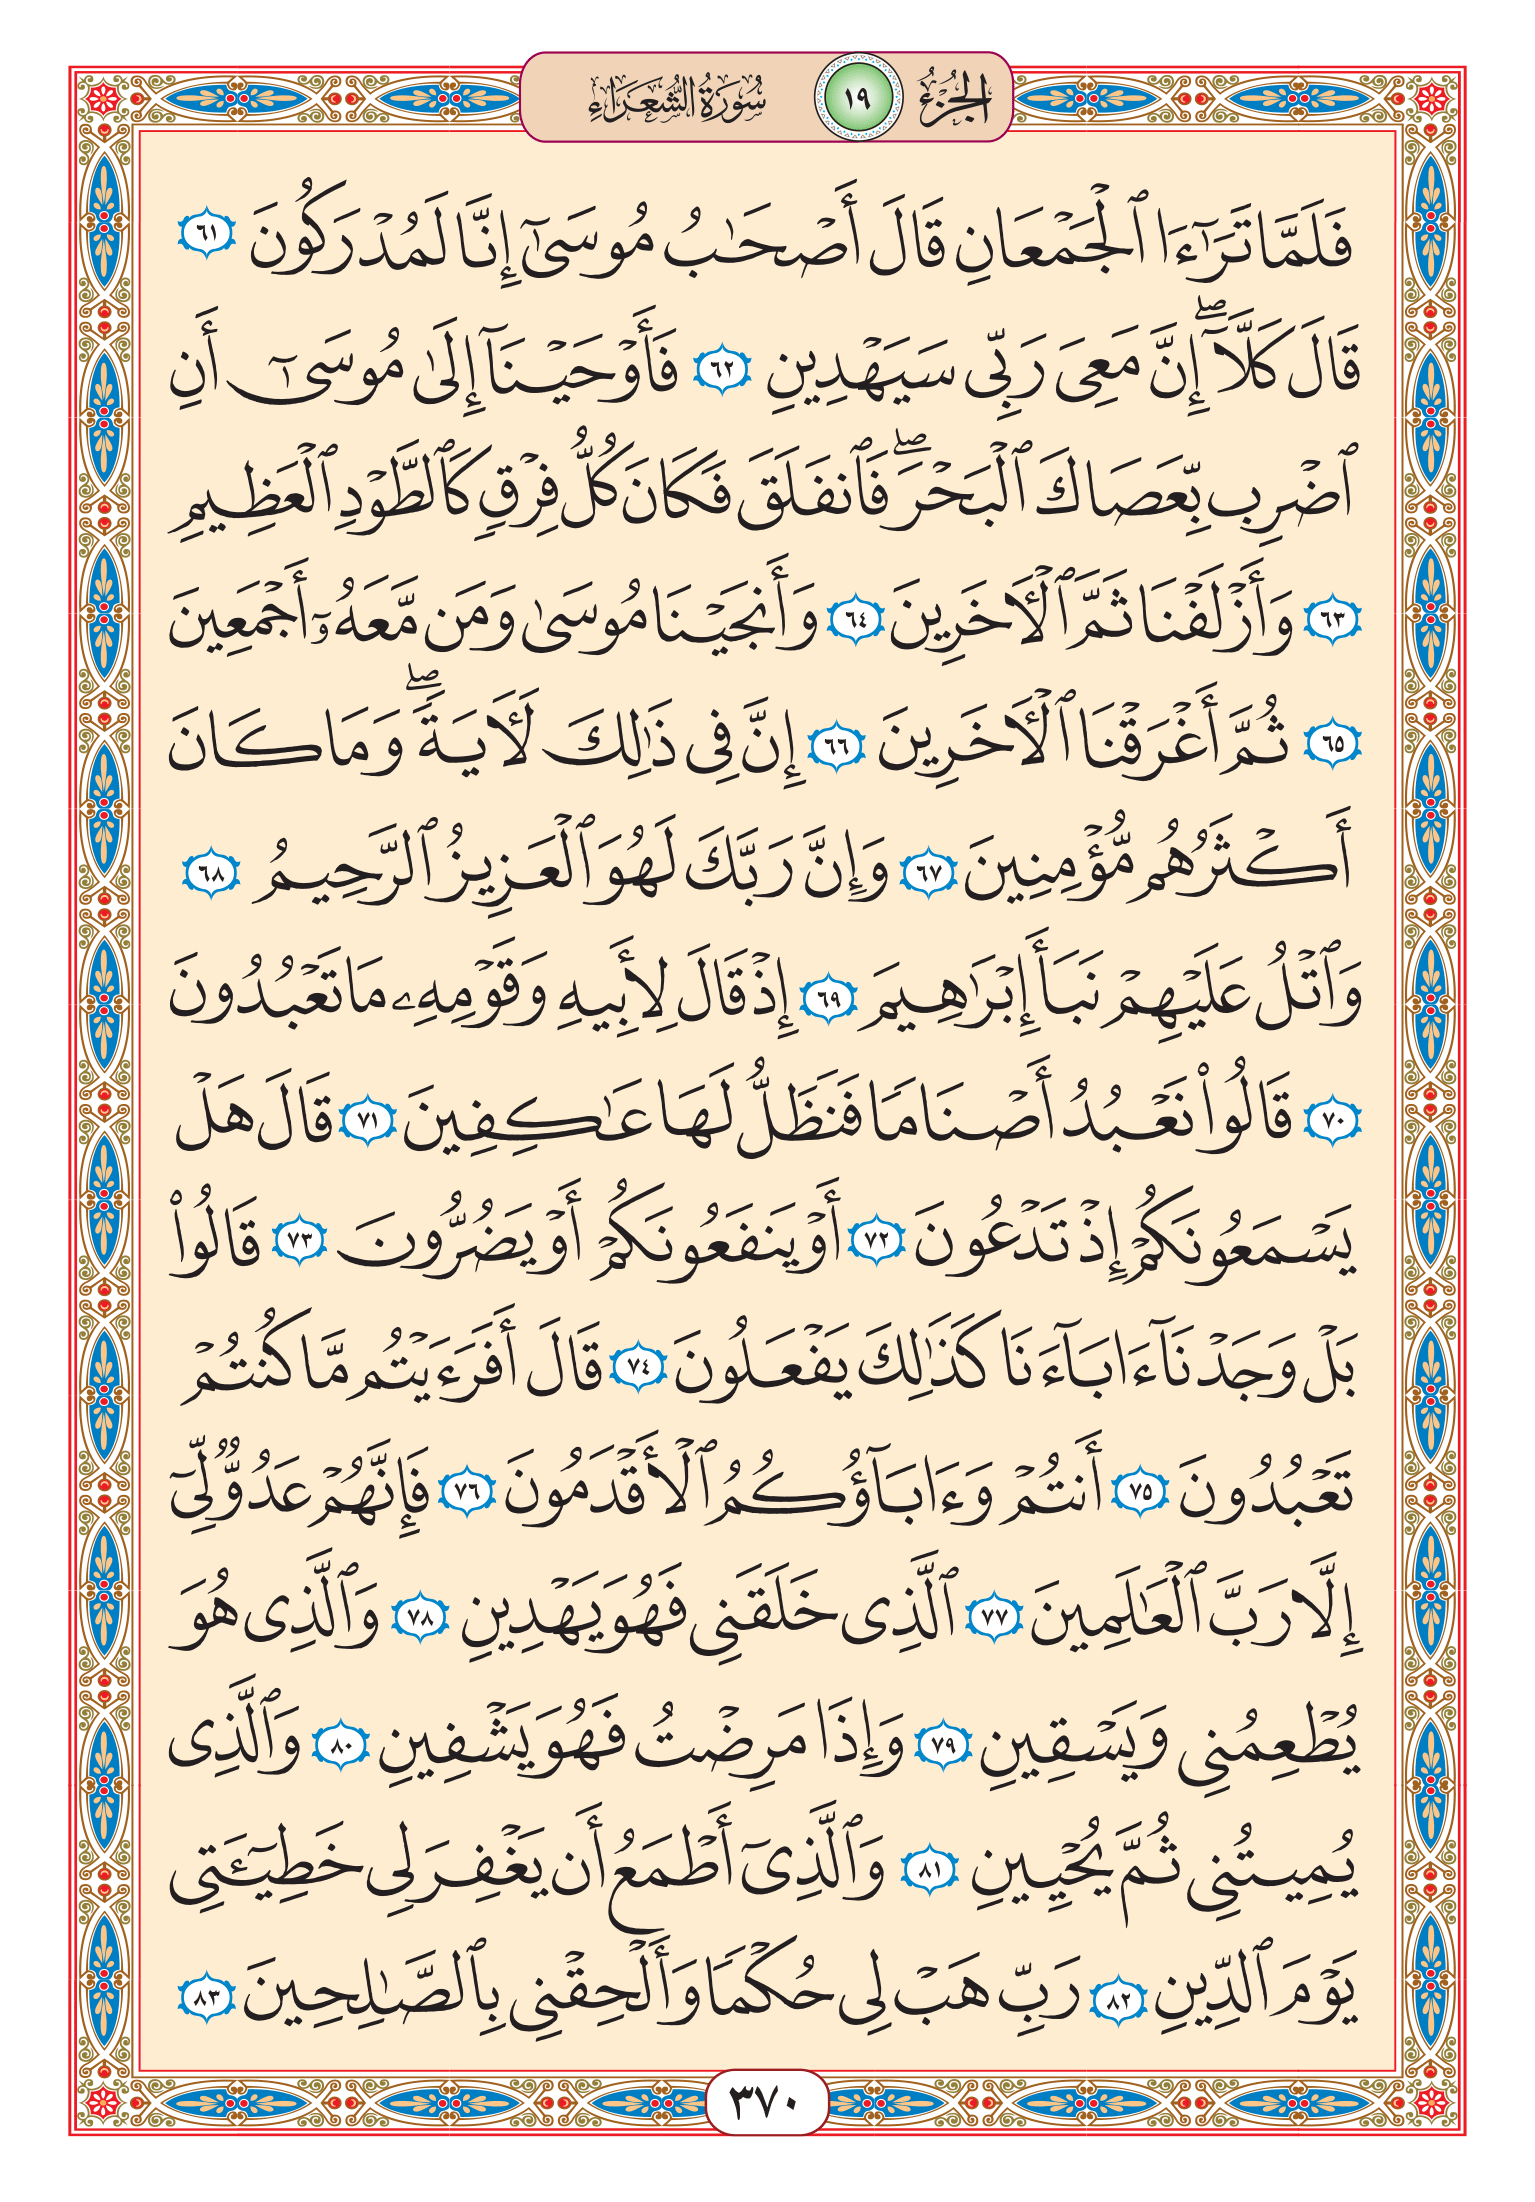 الجزء ١٩ سورة الشعراء
فَلَمَّا تَرَٰٓءَا ٱلۡجَمۡعَانِ قَالَ أَصۡحَٰبُ مُوسَىٰٓ إِنَّا لَمُدۡرَكُونَ ٦١
قَالَ كَلَّآۖ إِنَّ مَعِيَ رَبِّي سَيَهۡدِينِ ٦٢ فَأَوۡحَيۡنَآ إِلَىٰ مُوسَىٰٓ أَنِ
ٱضۡرِب بِّعَصَاكَ ٱلۡبَحۡرَۖ فَٱنفَلَقَ فَكَانَ كُلُّ فِرۡقٖ كَٱلطَّوۡدِ ٱلۡعَظِيمِ
٦٣ وَأَزۡلَفۡنَا ثَمَّ ٱلۡأٓخَرِينَ ٦٤ وَأَنجَيۡنَا مُوسَىٰ وَمَن مَّعَهُۥٓ أَجۡمَعِينَ
٦٥ ثُمَّ أَغۡرَقۡنَا ٱلۡأٓخَرِينَ ٦٦ إِنَّ فِي ذَٰلِكَ لَأٓيَةٗۖ وَمَا كَانَ
أَكۡثَرُهُم مُّؤۡمِنِينَ ٦٧ وَإِنَّ رَبَّكَ لَهُوَ ٱلۡعَزِيزُ ٱلرَّحِيمُ ٦٨
وَٱتۡلُ عَلَيۡهِمۡ نَبَأَ إِبۡرَٰهِيمَ ٦٩ إِذۡ قَالَ لِأَبِيهِ وَقَوۡمِهِۦ مَا تَعۡبُدُونَ
٧٠ قَالُواْ نَعۡبُدُ أَصۡنَامٗا فَنَظَلُّ لَهَا عَٰكِفِينَ ٧١ قَالَ هَلۡ
يَسۡمَعُونَكُمۡ إِذۡ تَدۡعُونَ ٧٢ أَوۡ يَنفَعُونَكُمۡ أَوۡ يَضُرُّونَ ٧٣ قَالُواْ
بَلۡ وَجَدۡنَآ ءَابَآءَنَا كَذَٰلِكَ يَفۡعَلُونَ ٧٤ قَالَ أَفَرَءَيۡتُم مَّا كُنتُمۡ
تَعۡبُدُونَ ٧٥ أَنتُمۡ وَءَابَآؤُكُمُ ٱلۡأَقۡدَمُونَ ٧٦ فَإِنَّهُمۡ عَدُوّٞ لِّيٓ
إِلَّا رَبَّ ٱلۡعَٰلَمِينَ ٧٧ ٱلَّذِي خَلَقَنِي فَهُوَ يَهۡدِينِ ٧٨ وَٱلَّذِي هُوَ
يُطۡعِمُنِي وَيَسۡقِينِ ٧٩ وَإِذَا مَرِضۡتُ فَهُوَ يَشۡفِينِ ٨٠ وَٱلَّذِي
يُمِيتُنِي ثُمَّ يُحۡيِينِ ٨١ وَٱلَّذِيٓ أَطۡمَعُ أَن يَغۡفِرَ لِي خَطِيٓـَٔتِي
يَوۡمَ ٱلدِّينِ ٨٢ رَبِّ هَبۡ لِي حُكۡمٗا وَأَلۡحِقۡنِي بِٱلصَّٰلِحِينَ ٨٣
٣٧٠